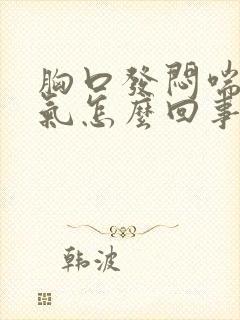 胸口發悶喘
氣怎麼回事
韩波